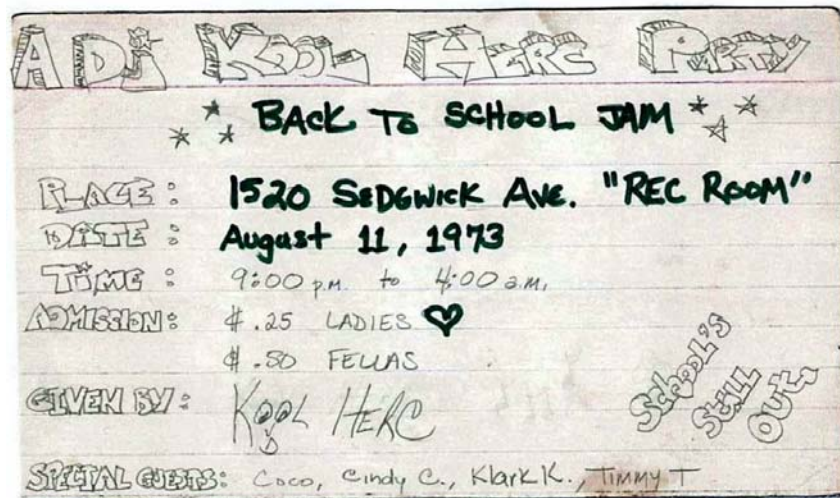 A DJ KOOL HERC PARTY
BACK TO SCHOOL JAM
PLACE: 1520 SEDGWICK AVE. "REC ROOM"
DATE: August 11, 1973
TIME: 9:00 p.m. to 4:00 a.m.
ADMISSION: $.25 LADIES ♥
$.50 FELLAS
GIVEN BY: KOOL HERC
SCHOOL'S
STILL
OUT.
SPECIAL GUESTS: Coco, Cindy C., Klark K., TIMMY T